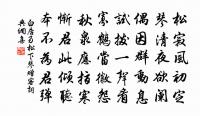 松寂風初定
琴清夜欲闌
偶因群動息
試撥一聲看
寡鶴當徽怨
秋泉應指寒
慚君此傾聽
本不為君彈
白居易松下琴贈客詞